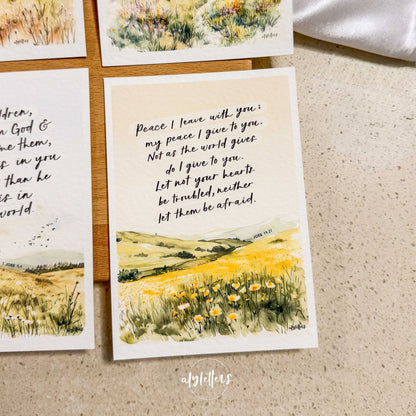 ldren,
n God &
me them,
s in you
than he
es in
world.
Peace I leave with you;
my peace I give to you.
Not as the world gives
do I give to you.
Let not your hearts
be troubled, neither
let them be afraid.
JOHN 14:27
alyletters
alyletters